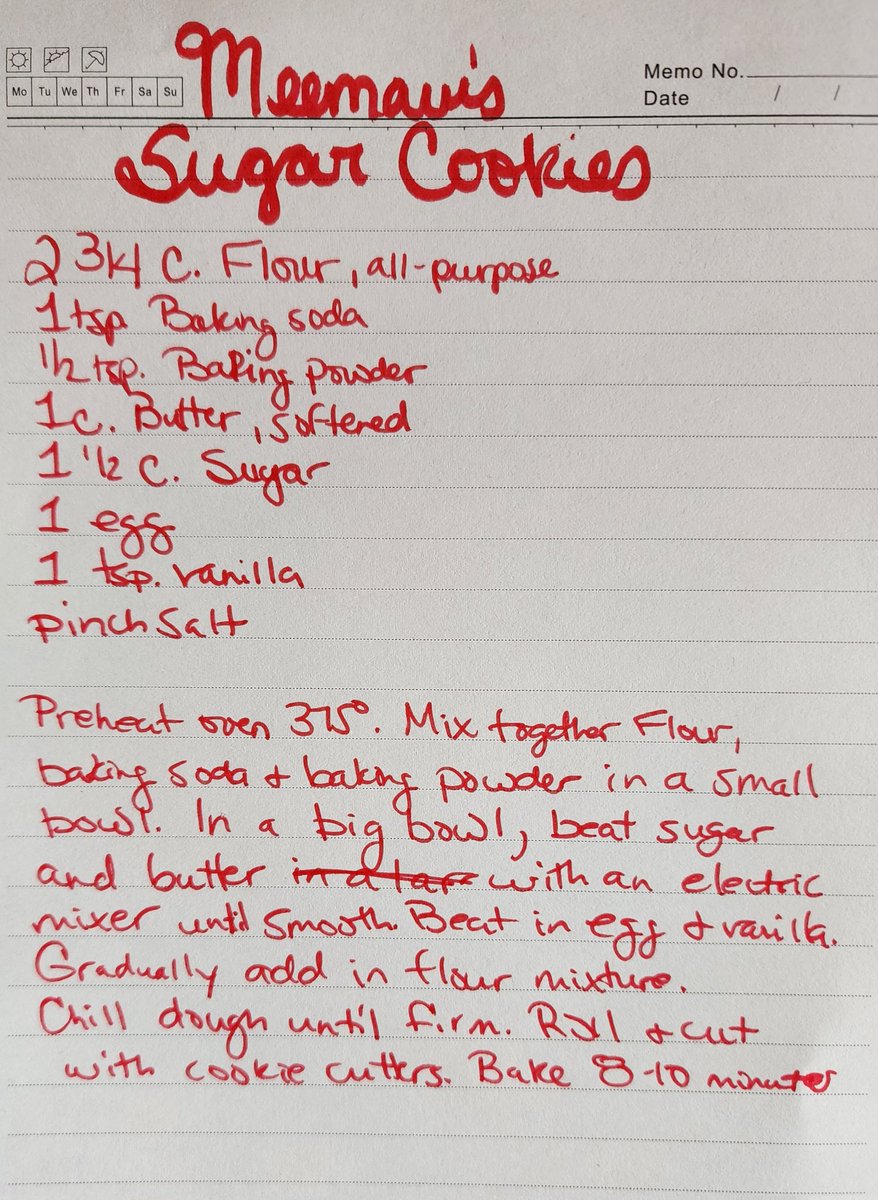 Mo Tu We Th Fr Sa Su
Memo No.
Date / /
Meemaw's
Sugar Cookies
2 3/4 C. Flour, all-purpose
1 tsp Baking soda
1/2 tsp. Baking powder
1 c. Butter, softered
1 1/2 C. Sugar
1 egg
1 tsp. vanilla
pinch salt
Preheat oven 375°. Mix together Flour,
baking soda & baking powder in a small
bowl. In a big bowl, beat sugar
and butter with an electric
mixer until smooth. Beat in egg & vanilla.
Gradually add in flour mixture.
Chill dough until firm. Roll & cut
with cookie cutters. Bake 8-10 minutes